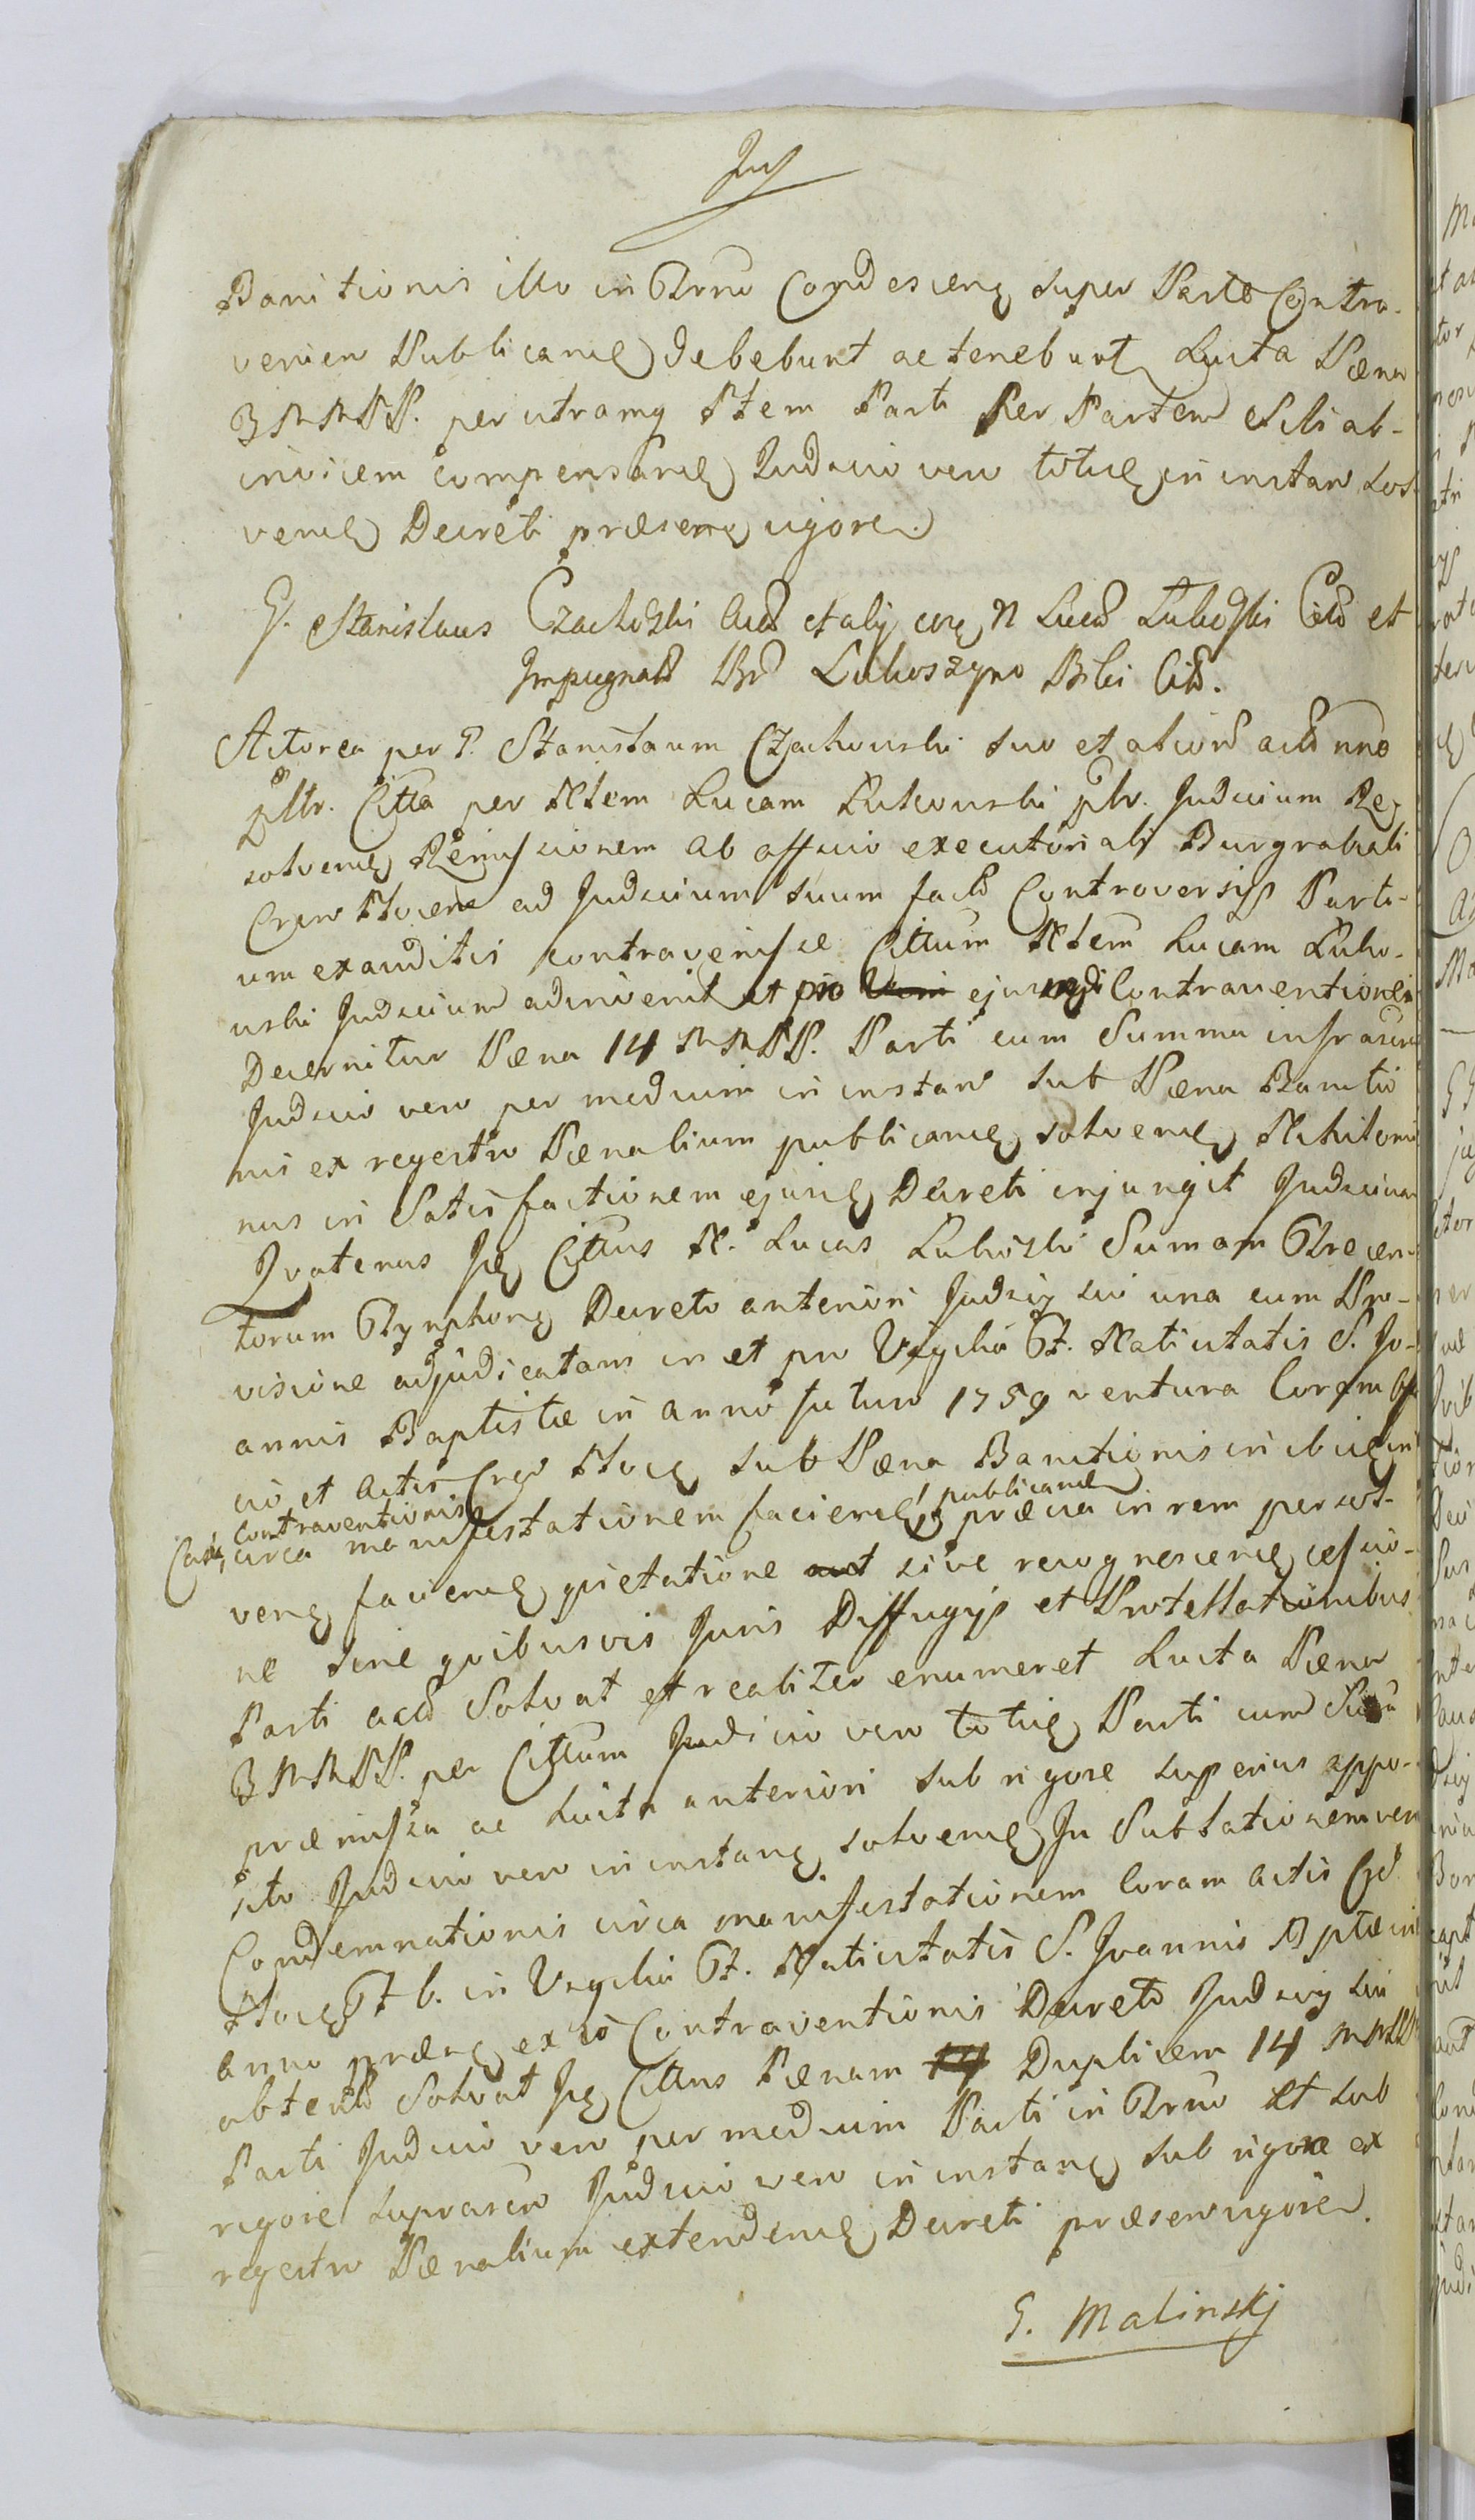 Jus
Banitionis illo in Trno Condescenᶒ super Parte Contra-
venien Publicandᶒ debebunt ac tenebunt Lucta Pæna
3 MMPP. per utramqᶒ Ptem Parti Per Partem et Sibi ab-
invicem compensandᶒ Judicio vero totidᶒ in instan sol-
vendᶒ Decreti præsenᶒ vigore
G. Stanislaus Czachoski Act et alij corᶒ N Lucas Lukoski Citt et
Impugnatt Bo Lukoszyno Biki Citt.
Actorea per G. Stanislaum Czachouski suo et aliorum actt nne
pltr. Citta per Nlem Lucam Lukouski pltr. Judicium Re-
solvendᶒ Remissionem ab officio executoriali Burgrabiali
Cren Plocenᶒ ad Judicium suum factt Controversijs Parti-
um exauditis contravenisse Cittum Nlem Lucam Luko-
uski Judicium adinvenit et pro ejusmdi Contraventione
Decernitur Pæna 14 MMPP. Parti cum Summa infrascri
Judicio vero per medium in instan sub Pæna Banitio
nis ex regestro Pænalium publicandᶒ solvendᶒ Nihilomi
nus in Satisfactionem ejusdᶒ Decreti injungit Judicium
Quatenus Idᶒ Cittus N. Lucas Lukoski Sumam Trecen-
torum Tynphonᶒ Decreto anteriori Judicij sui una cum Pro-
visione adjudicatam in et pro Vigilia Ft. Nativitatis S. Jo-
annis Baptistæ in anno futuro 1759 ventura Coram offi
cio et Actis Cren Plocᶒ sub Pæna Banitionis in ibidᶒ in
Contraventionis publicandᶒ
Casuᶒ circa manifestationem faciendᶒ, prævia in rem persol-
venᶒ faciendᶒ quietatione sive recognoscendᶒ cessio-
ne sine quibusvis Juris Diffugijs et Protestationibus
Parti actt Solvat et realiter enumeret Lucta Pæna
3 MMPP. per Cittum Judicio vero totidᶒ Parti cum Suma
præmissa ac Lucta anteriori sub rigore superius appo-
sito Judicio vero in instanᶒ solvendᶒ In Sublationem vero
Condemnationis circa manifestationem Coram actis Cren
Plocᶒ Ft b. in Vigilia Ft. Nativitatis S. Joannis Bptæ in
anno præsᶒ ex io Contraventionis Decreto Judicij sui
obtentt Solvat Idᶒ Cittus Pænam Duplicem 14 MMPP
Parti Judicio vero per medium Parti in Trno et sub
rigore suprascr Judicio vero in instanᶒ sub rigore ex
regestro Pænalium extendendᶒ Decreti præsen vigore.
G. Malinskj